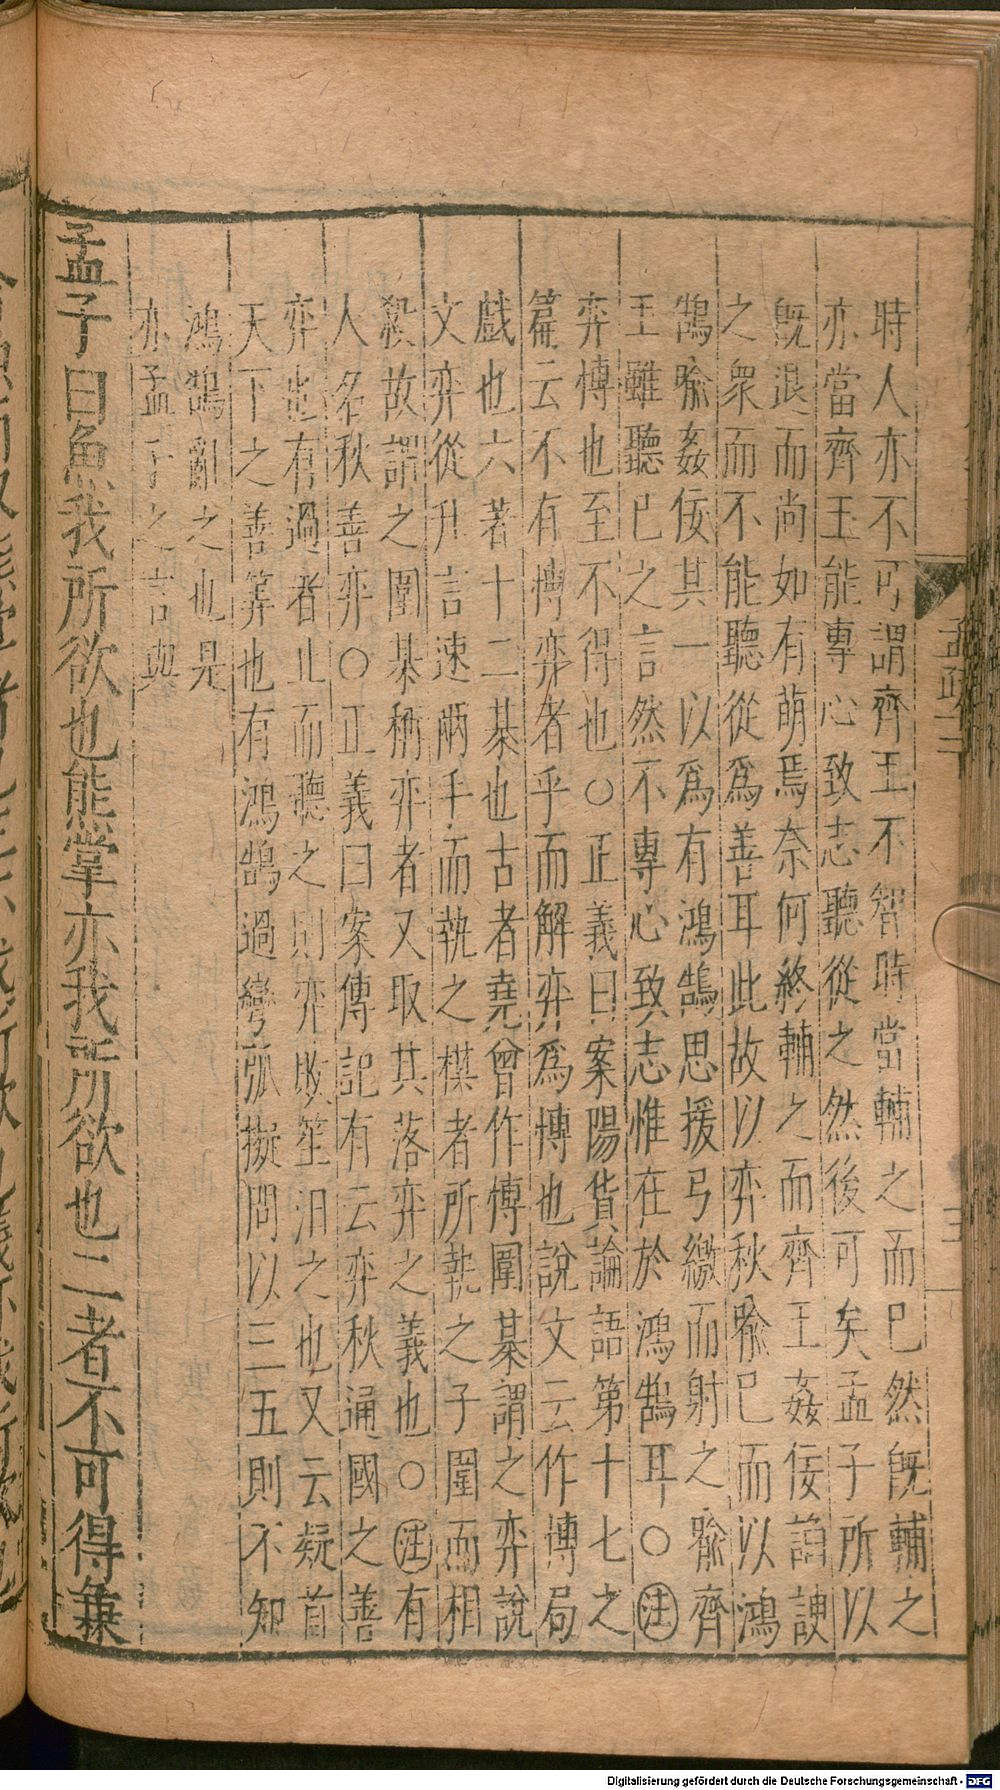 時人亦不可謂齊王不智時當輔之而已然旣輔之
亦當齊王能專心致志聽從之然後可矣孟子所以
旣退而尚如有萌焉奈何終輔之而齊王姦佞諂諛
之衆而不能聽從爲善耳此故以弈秋喻已而以鴻
鵠喻姦佞其一以爲有鴻鵠思援弓繳而射之喻齊
王雖聽已之言然不專心致志惟在於鴻鵠耳○注
弈博也至不得也○正義曰案陽貨論語第十七之
篇云不有博弈者乎而解弈爲博也說文云作博局
戲也六著十二棊也古者堯曾作博圍棊謂之弈說
文弈從廾言速兩手而執之棊者所執之子圍而相
殺故謂之圍棊稱弈者又取其落弈之義也○注有
人名秋善弈○正義曰案傳記有云弈秋通國之善
弈也有過者止而聽之則弈敗笙汨之也又云疑首
天下之善筭也有鴻鵠過彎弧擬問以三五則不知
鴻鵠亂之也是
亦孟子之言與
孟子曰魚我所欲也熊掌亦我所欲也二者不可得兼
孟疏
三
Digitalisierung gefördert durch die Deutsche Forschungsgemeinschaft - DFG